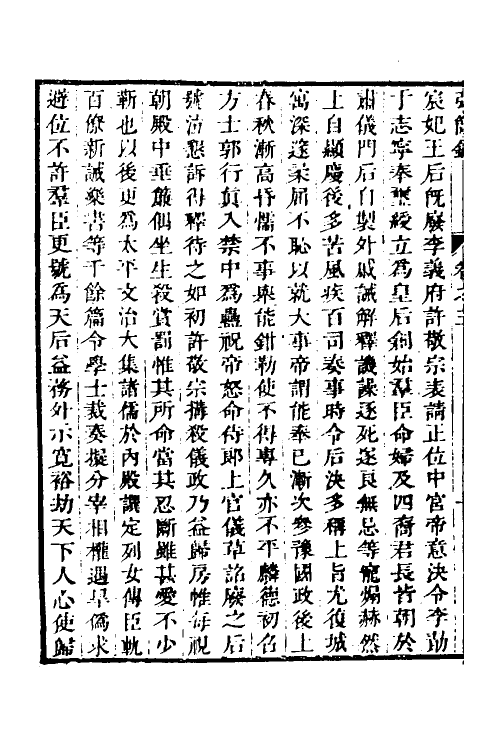 宸妃王后旣廢李義府許敬宗表請正位中宮帝意決令李勣
于志寧奉璽綬立爲皇后創始羣臣命婦及四裔君長皆朝於
肅儀門后自製外戚誡解釋譏譟逐死遂良無忌等寵煽赫然
上自顯慶後多苦風疾百司奏事時令后決多稱上旨尤復城
寓深邃柔屈不恥以就大事帝謂能奉已漸次參豫國政後上
春秋漸高昏懦不事輿能鉗勒使不得專久亦不平麟德初召
方士郭行眞入禁中爲蠱祝帝怒命侍郎上官儀草詔廢之后
號泣懇訴得釋待之如初許敬宗搆殺儀政乃益歸房帷每視
朝殿中垂簾偶坐生殺賞罰惟其所命當其忍斷雖甚愛不少
靳也以後更爲太平文治大集諸儒於內殿譔定列女傳臣軌
百僚新誡樂書等千餘篇令學士裁奏擬分宰相權遇旱僞求
避位不許羣臣更號爲天后益務外示寬裕劫天下人心使歸